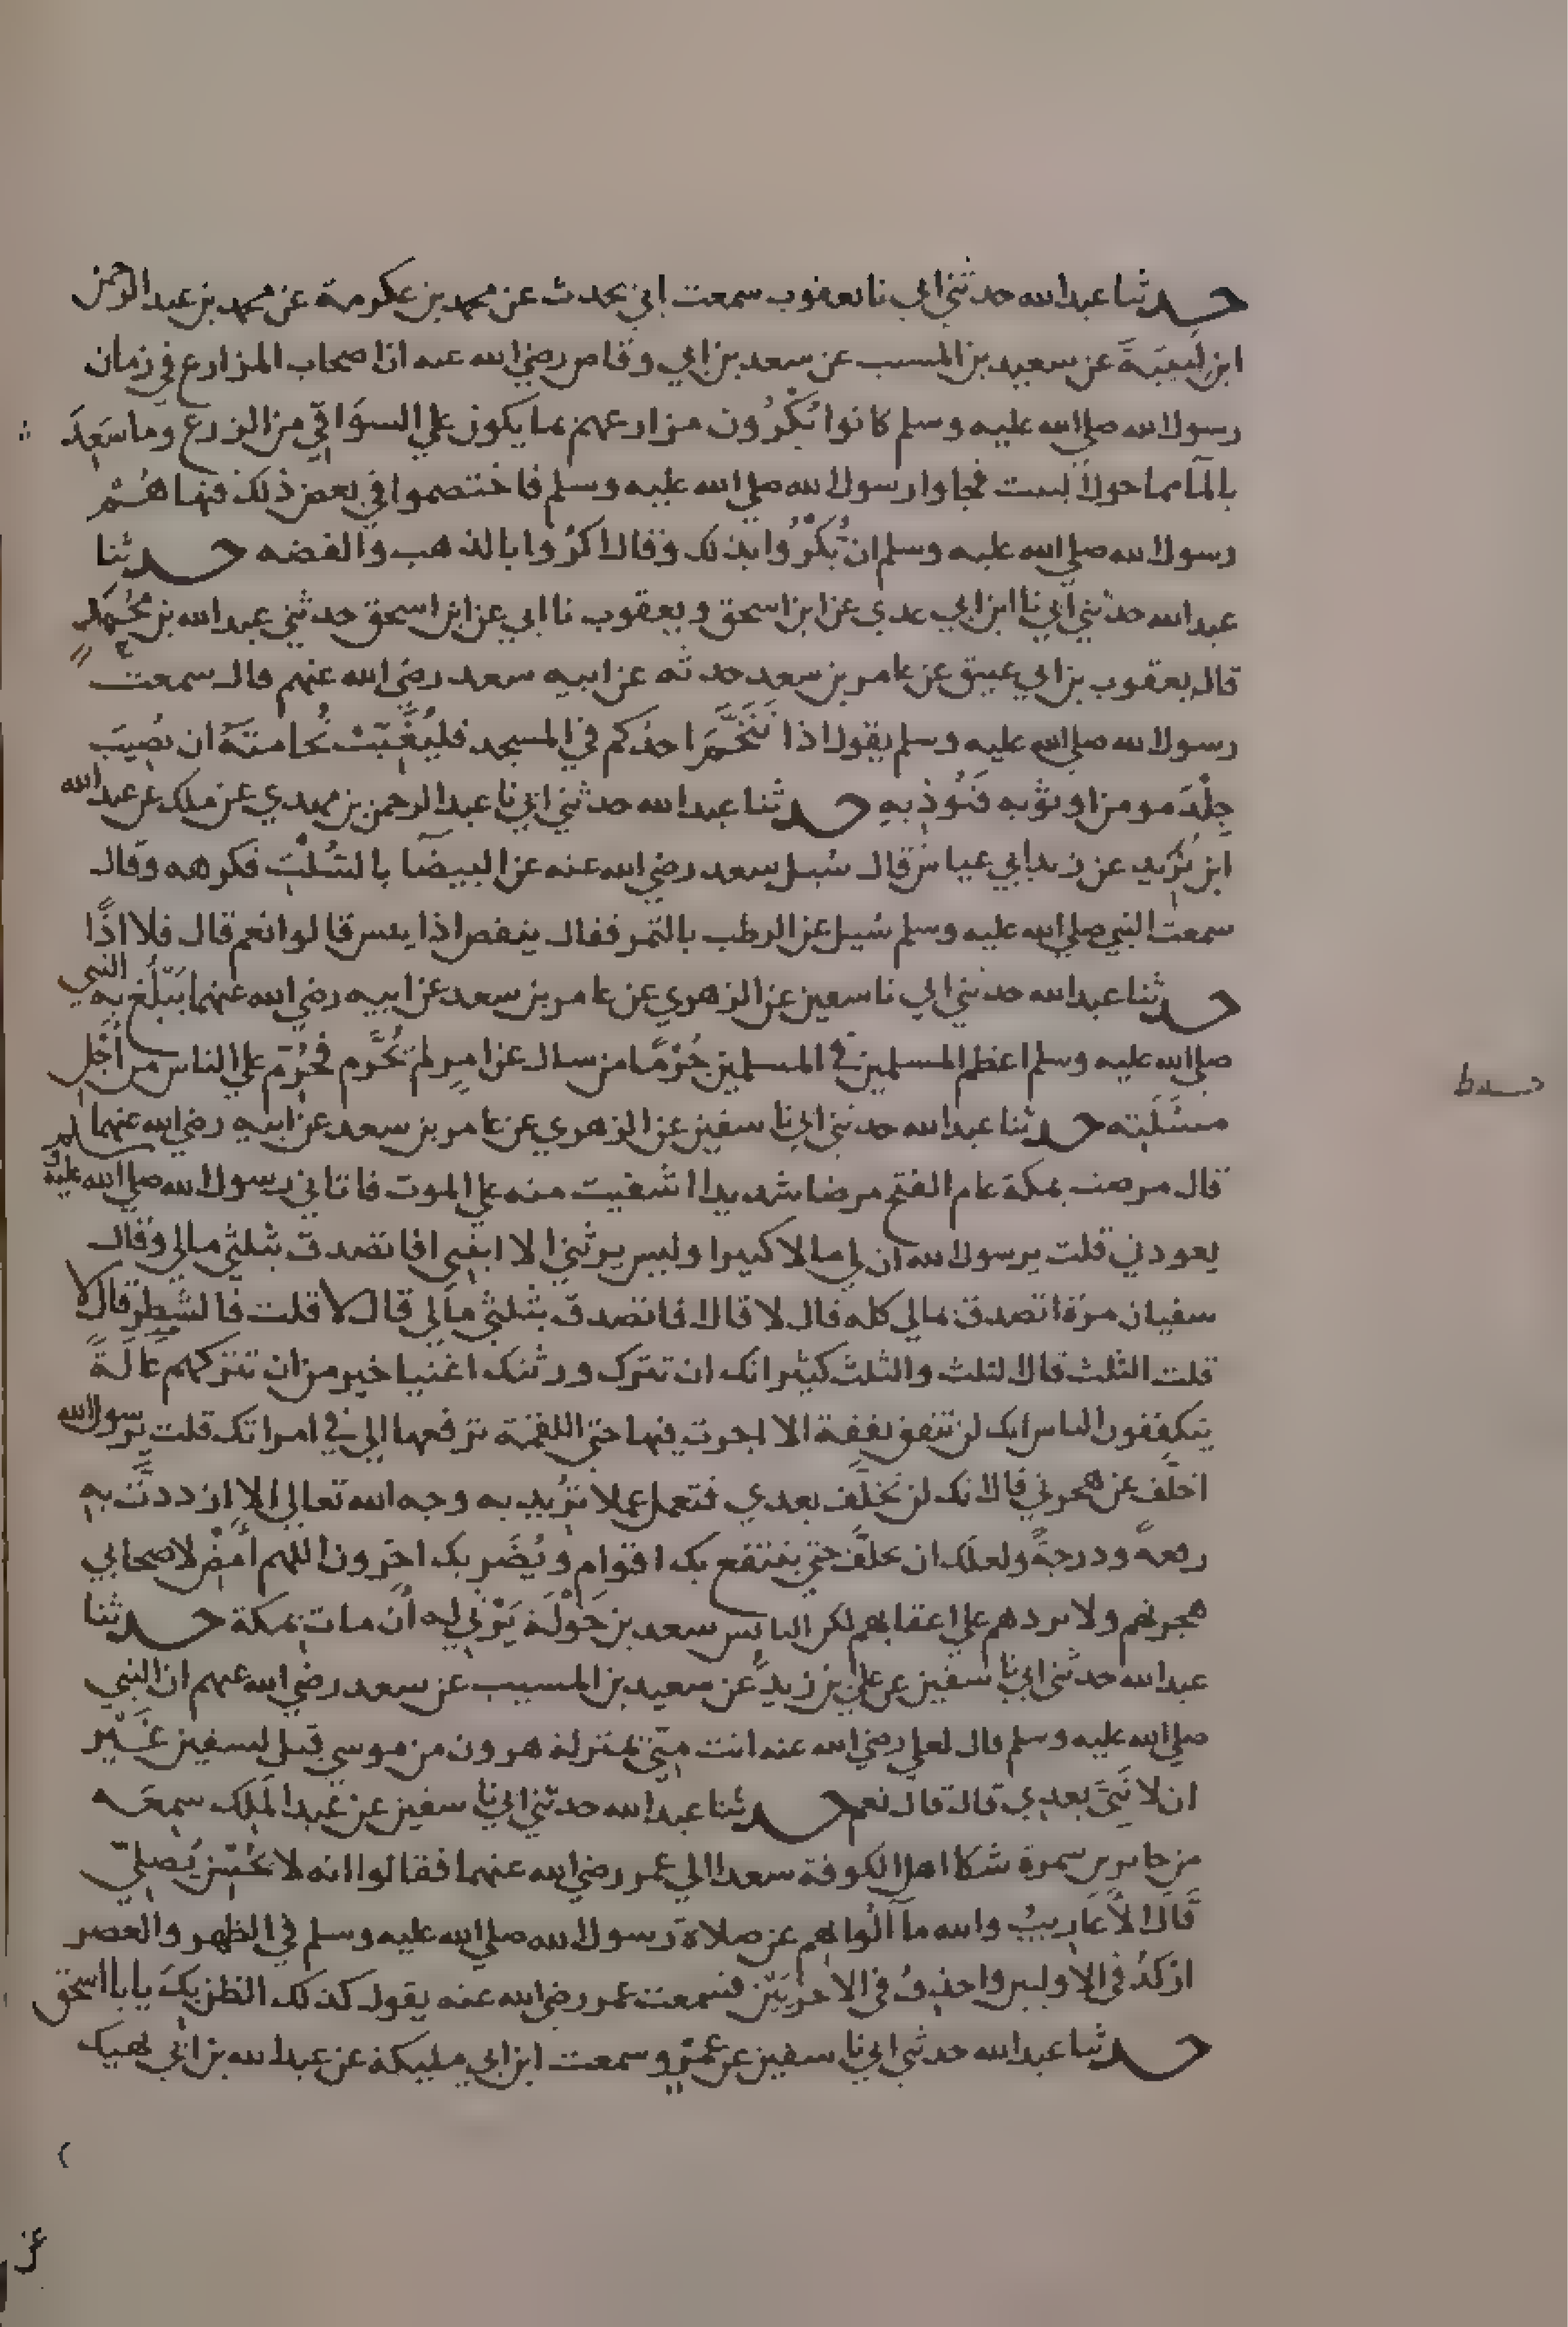 حدثنا عبدالله حدثني ابي نا يعقوب سمعت ابي يحدث عن محمد بن عكرمة عن محمد بن عبد الرحمن
ابن لَبِيبَةَ عن سعيد بن المسيب عن سعد بن ابي وقاص رضي الله عنه ان اصحاب المزارع في زمان
رسول الله صلى الله عليه وسلم كانوا يُكْرُون مزارعهم بما يكون علي السوَاقي من الزرع وما سَعِدَ
بالمآ مما حول النبت فجاوا رسول الله صلى الله عليه وسلم فاختصموا في بعض ذلك فنهاهُمْ
رسول الله صلى الله عليه وسلم ان يُكْرُوا بذلك وقال اكرُوا بالذهب والفضه حدثنا
عبدالله حدثني ابي نا ابن ابي عدي عن ابن اسحق ويعقوب نا ابي عن ابن اسحق حدثني عبدالله بن مُحمد
قال يعقوب بن ابي عتيق عن عامر بن سعد حدثه عن ابيه سعد رضي الله عنهم قال سمعت
رسول الله صلى الله عليه وسلم يقول اذا تَنَخَّمَ احدكم في المسجد فليُغَيِّبْ نُخامتَهُ ان تُصِيبَ
جِلْدَ مومن او ثوبه فتُوذِيهِ حدثنا عبدالله حدثني ابي نا عبد الرحمن بن مهدي عن ملك عن عبدالله
ابن يَزيد عن زيد ابي عياش قال سُيل سعد رضي الله عنه عن البيضآ بالسُلْت فكرهه وقال
سمعت النبي صلى الله عليه وسلم سُيل عن الرطب بالتمر فقال ينقص اذا يبس قالوا نعم قال فلا اذًا
حدثنا عبدالله حدثني ابي نا سفين عن الزهري عن عامر بن سعد عن ابيه رضي الله عنهما يَبْلُغ به النبي
صلى الله عليه وسلم اعظم المسلمين في المسلمين جُرْمًا من سال عن امرٍ لم يُحَرَّم فحُرّم علي الناس من أجْلِ
مسَئَلَتِه حدثنا عبدالله حدثني ابي نا سفين عن الزهري عن عامر بن سعد عن ابيه رضي الله عنهما
قال مرضت بمكة عام الفتح مرضا شديدا اشفيت منه علي الموت فاتاني رسول الله صلى الله عليه وسلم
يعودني قلت يرسول الله ان لي مالا كثيرا وليس يرثني الا ابنتي افاتصدق بثلثي مالي وقال
سفيان مرة اتصدق بمالي كله قال لا قال افاتصدق بثلثي مالي قال لا قلت فالشطر قال لا
قلت الثلث قال الثلث والثلث كثير انك ان تترك ورثتك اغنيا خير من ان تتركهم عَالَةً
يتكففون الناس انك لن تنفق نفقة الا اجرت فيها حتى اللقمة ترفعها الي في امراتك قلت يرسول الله
اخلَّف عن هجرتي قال انك لن تخلَّف بعدي فتعمل عملا تُريد به وجه الله تعالي الا ازددتَّ به
رفعةً ودرجةً ولعلك ان تخلَّف حتي ينتفع بك اقوام ويُضَر بك اخرون اللهم أَمْضِ لاصحابي
هجرتهم ولا تردهم علي اعقابهم لكن البايس سعد بن خَوْلَة يَرْثي له أن مات بمكة حدثنا
عبدالله حدثني ابي نا سفين عن علي بن زيد عن سعيد بن المسيب عن سعد رضي الله عنهم ان النبي
صلى الله عليه وسلم قال لعلي رضي الله عنه انت مِنّي بمنزلة هرون من موسي قيل لسفين غَيْر
ان لا نَبِيَّ بعدي قال قال نعم حدثنا عبدالله حدثني ابي نا سفين عن عبد الملك سمعه
من جابر بن سمرة شكا اهل الكوفة سعدا الي عمر رضي الله عنهما فقالوا انه لا يُحْسِن يُصلِيّ
قَالَ الأعَاريبُ والله مآ آلُوا بهم عن صلاة رسول الله صلى الله عليه وسلم في الظهر والعصر
اركدُ في الاوليين واحذِفُ في الاخرَيَيْن فسمعت عمر رضي الله عنه يقول كذلك الظن بكَ يابا اسحق
حدثنا عبدالله حدثني ابي نا سفين عن عَمْرٍو سمعت ابن ابي مليكة عن عبدالله بن ابي نهيك
عن